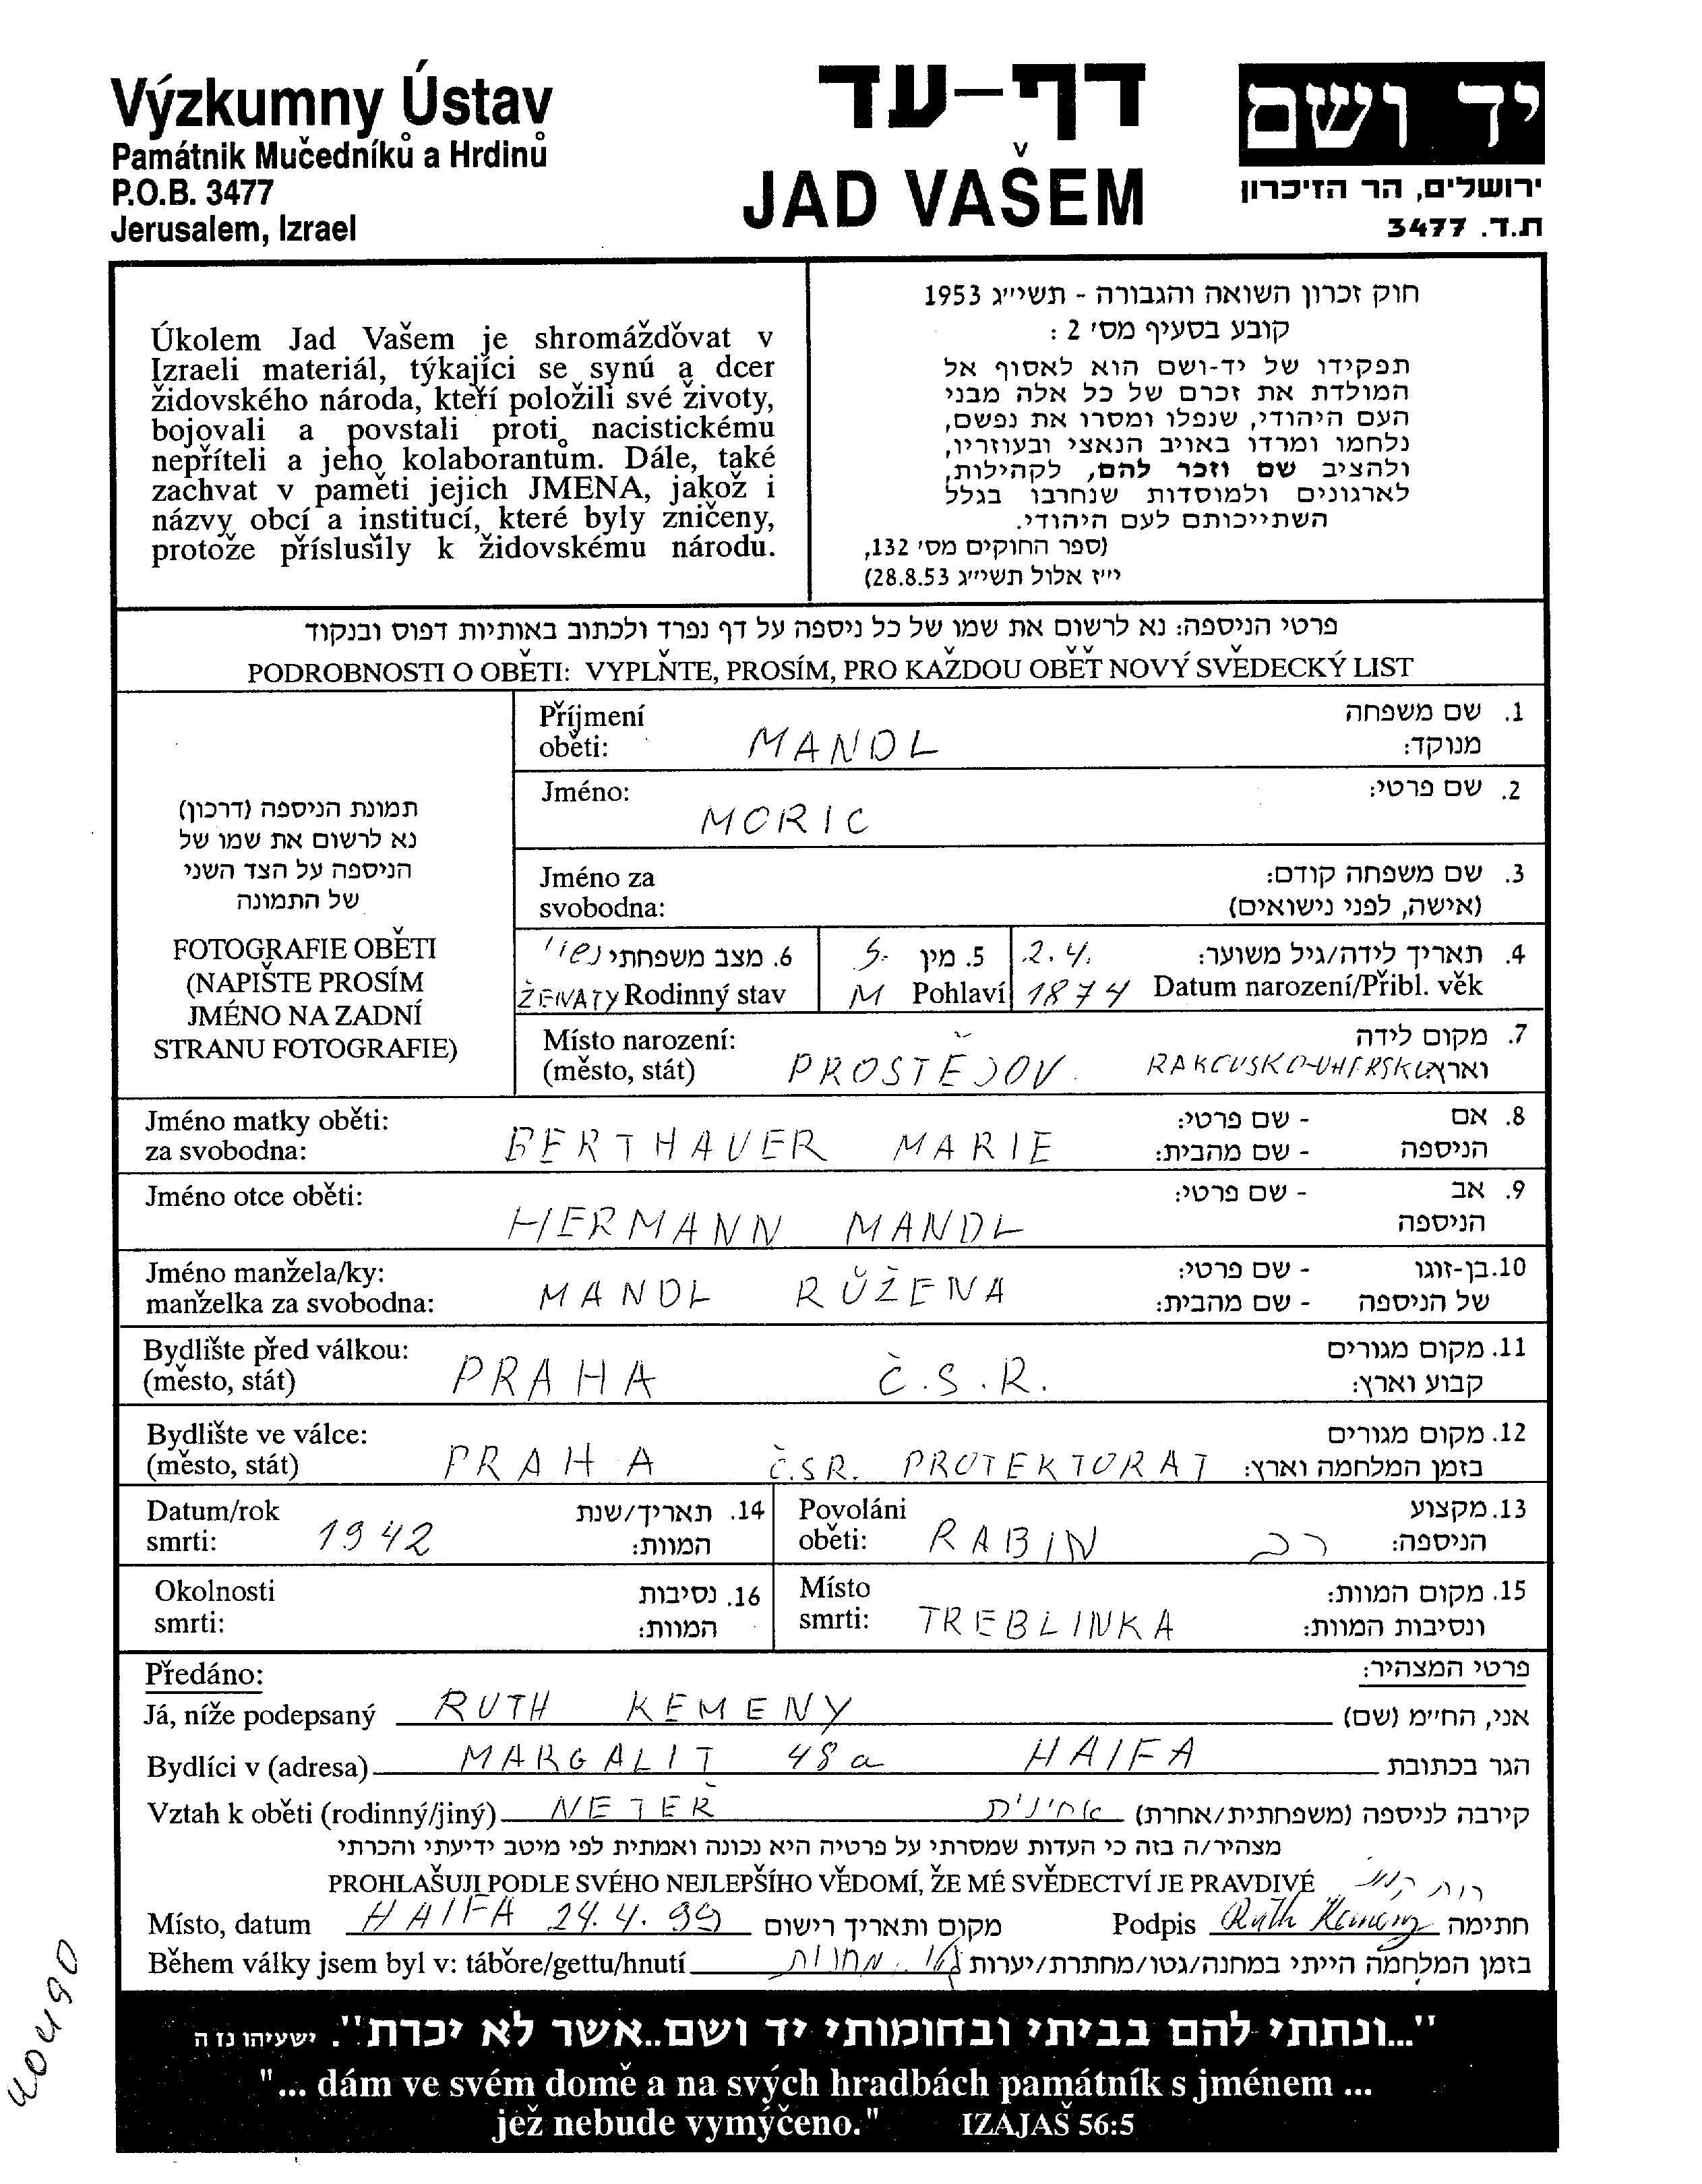 Výzkumny Ústav
Památnik Mučedníků a Hrdinů
P.O.B. 3477
Jerusalem, Izrael
דף-עד
JAD VAŠEM
יד ושם
ירושלים, הר הזיכרון
ת.ד. 3477
Úkolem Jad Vašem je shromáždǒvat v
Izraeli materiál, týkajíci se synú a dcer
židovského národa, kteří položili své životy,
bojovali a povstali proti nacistickému
nepříteli a jeho kolaborantům. Dále, také
zachvat v pamĕti jejich JMENA, jakož i
názvy obcí a institucí, které byly zničeny,
protože příslušily k židovskému národu.
חוק זכרון השואה והגבורה - תשי״ג 1953
קובע בסעיף מס׳ 2 :
תפקידו של יד-ושם הוא לאסוף אל
המולדת את זכרם של כל אלה מבני
העם היהודי, שנפלו ומסרו את נפשם,
נלחמו ומרדו באויב הנאצי ובעוזריו,
ולהציב שם וזכר להם, לקהילות,
לארגונים ולמוסדות שנחרבו בגלל
השתייכותם לעם היהודי.
(ספר החוקים מס׳ 132,
י״ז אלול תשי״ג 28.8.53)
פרטי הניספה: נא לרשום את שמו של כל ניספה על דף נפרד ולכתוב באותיות דפוס ובנקוד
PODROBNOSTI O OBĚTI: VYPLŇTE, PROSÍM, PRO KAŽDOU OBĚŤ NOVÝ SVĚDECKÝ LIST
תמונת הניספה (דרכון)
נא לרשום את שמו של
הניספה על הצד השני
של התמונה
FOTOGRAFIE OBĚTI
(NAPIŠTE PROSÍM
JMÉNO NA ZADNÍ
STRANU FOTOGRAFIE)
Příjmení 1. שם משפחה
oběti: MANDL מנוקד:
Jméno: 2. שם פרטי:
MORIC
Jméno za 3. שם משפחה קודם:
svobodna: (אישה, לפני נישואים)
6. מצב משפחתי נשוי 5. מין 2.4. 4. תאריך לידה/גיל משוער:
ŽENATY Rodinný stav M Pohlaví 1874 Datum narození/Přibl. věk
Místo narození: 7. מקום לידה
(město, stát) PROSTĚJOV RAKOUSKO-UHERSKO וארץ
Jméno matky oběti: 8. אם - שם פרטי:
za svobodna: BERTHAUER MARIE הניספה - שם מהבית:
Jméno otce oběti: 9. אב - שם פרטי:
HERMANN MANDL הניספה
Jméno manžela/ky: 10. בן-זוגו - שם פרטי:
manželka za svobodna: MANDL RŮŽENA של הניספה - שם מהבית:
Bydlište před válkou: 11. מקום מגורים
(město, stát) PRAHA Č.S.R. קבוע וארץ:
Bydlište ve válce: 12. מקום מגורים
(město, stát) PRAHA Č.S.R. PROTEKTORAT בזמן המלחמה וארץ:
Datum/rok 14. תאריך/שנת Povoláni 13. מקצוע
smrti: 1942 המוות: oběti: RABIN רב הניספה:
Okolnosti 16. נסיבות Místo 15. מקום המוות:
smrti: המוות: smrti: TREBLINKA ונסיבות המוות:
Předáno: פרטי המצהיר:
Já, níže podepsaný RUTH KEMENY אני, הח״מ (שם)
Bydlíci v (adresa) MARGALIT 48a HAIFA הגר בכתובת
Vztah k oběti (rodinný/jiný) NETEŘ אחינית קירבה לניספה (משפחתית/אחרת)
מצהיר/ה בזה כי העדות שמסרתי על פרטיה היא נכונה ואמתית לפי מיטב ידיעתי והכרתי
PROHLAŠUJI PODLE SVÉHO NEJLEPŠÍHO VĚDOMÍ, ŽE MÉ SVĚDECTVÍ JE PRAVDIVÉ
Místo, datum HAIFA 24.4.99 מקום ותאריך רישום Podpis Ruth Kemeny חתימה
Během války jsem byl v: táboře/gettu/hnutí בזמן המלחמה הייתי במחנה/גטו/מחתרת/יערות
"...ונתתי להם בביתי ובחומותי יד ושם..אשר לא יכרת". ישעיהו נז ה
"... dám ve svém domě a na svých hradbách památník s jménem ...
jež nebude vymýčeno." IZAJAŠ 56:5